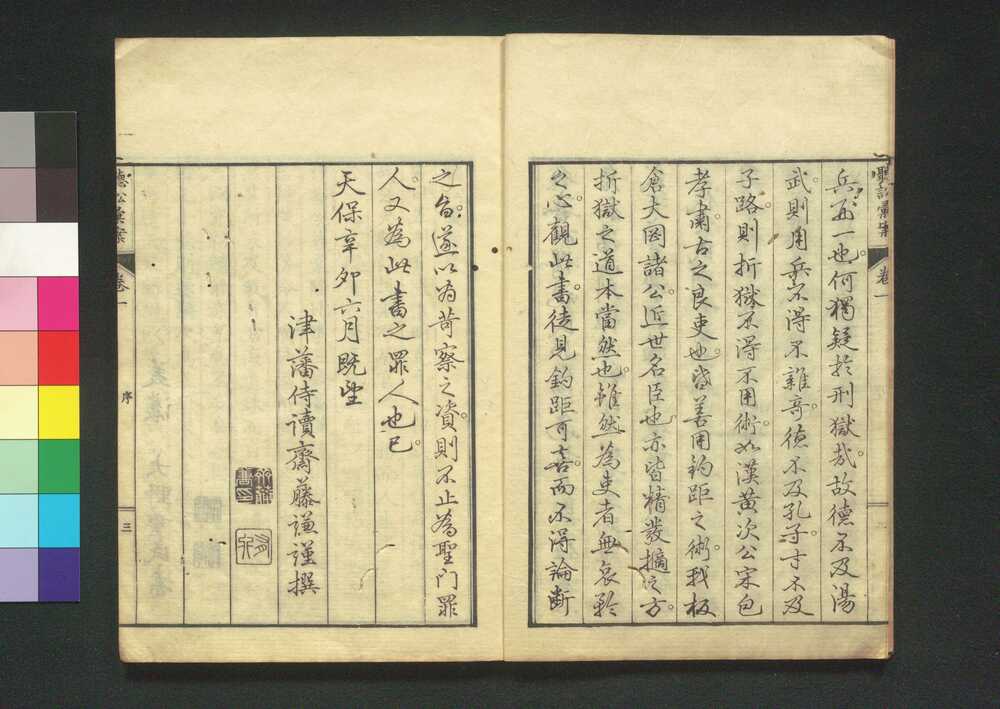 兵刑一也何獨疑於刑獄哉故德不及湯
武則用兵不得不雜奇德不及孔子才不及
子路則折獄不得不用術如漢黃次公宋包
孝肅古之良吏也皆善用鉤距之術我板
倉大岡諸公近世名臣也亦皆精發擿之方
折獄之道本當然也雖然為吏者無哀矜
之心觀此書徒見鉤距可喜而不得論斷
之旨遂以為苛察之資則不止為聖門罪
人又為此書之罪人也已
天保辛卯六月既望
津藩侍讀齋藤謙謹撰
聽訟彙案
卷一
序
三